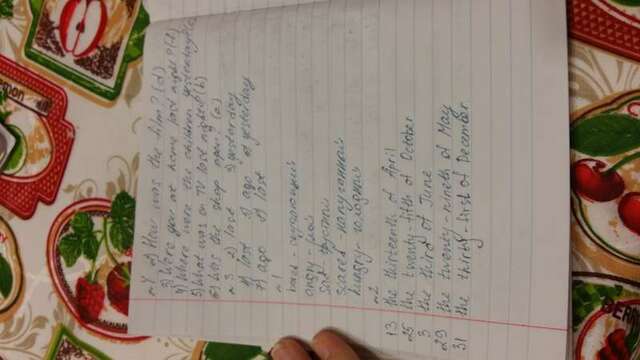 №4 2) How was the film? (d)
3) Were you at home last night? (f)
4) Where were the children yesterday? (c)
5) What was on TV last night? (b)
6) Was the shop open? (a)
№3 2) last 3) yesterday
4) last 5) ago 6) yesterday
7) ago 8) last
№1
bored - скучающий
angry - злой
sad - грустный
scared - напуганный
hungry - голодный
№2
13 the thirteenth of April
25 the twenty-fifth of October
3 the third of June
29 the twenty-nineth of May
31 the thirty-first of December